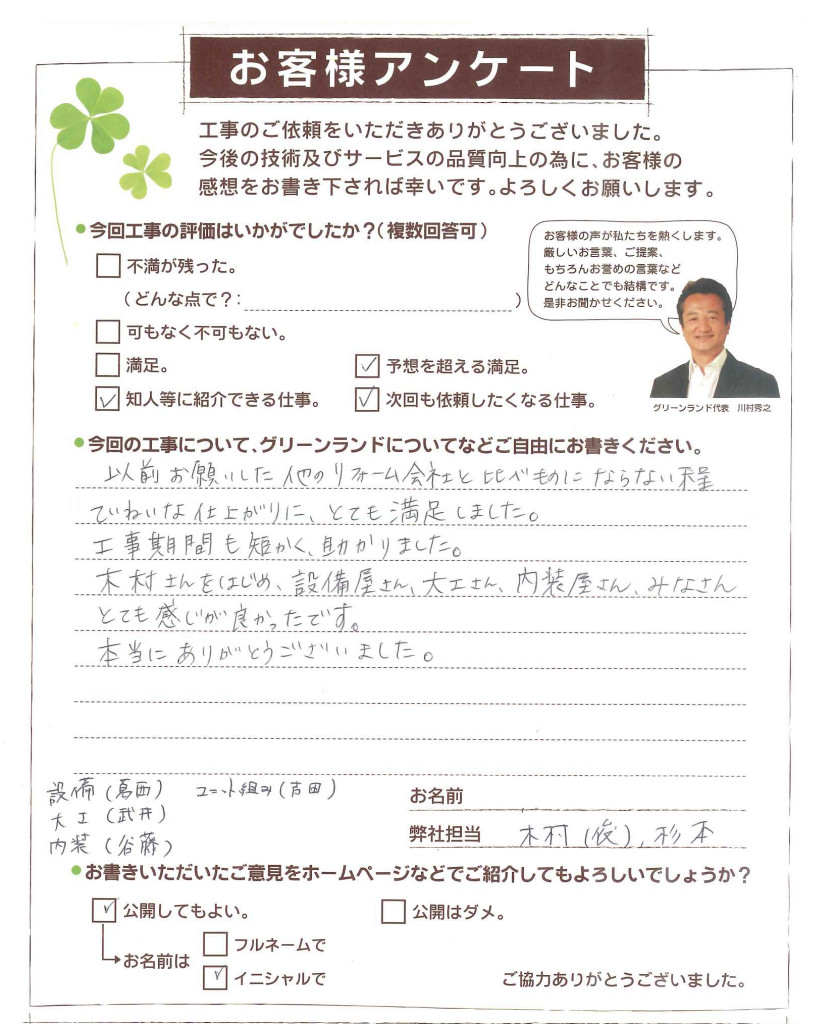 お客様アンケート
工事のご依頼をいただきありがとうございました。
今後の技術及びサービスの品質向上の為に、お客様の
感想をお書き下されば幸いです。よろしくお願いします。
今回工事の評価はいかがでしたか？（複数回答可）
不満が残った。
（どんな点で？：　）
可もなく不可もない。
満足。
予想を超える満足。
知人等に紹介できる仕事。
次回も依頼したくなる仕事。
お客様の声が私たちを熱くします。
厳しいお言葉、ご提案、
もちろんお誉めの言葉など
どんなことでも結構です。
是非お聞かせください。
グリーンランド代表　川村秀之
今回の工事について、グリーンランドについてなどご自由にお書きください。
以前お願いした他のリフォーム会社と比べものにならない程
ていねいな仕上がりに、とても満足しました。
工事期間も短かく、助かりました。
木村さんをはじめ、設備屋さん、大工さん、内装屋さん、みなさん
とても感じが良かったです。
本当にありがとうございました。
設備（葛西）　ユニット組み（吉田）
大工（武井）
内装（谷藤）
お名前
弊社担当　木村（俊）、杉本
お書きいただいたご意見をホームページなどでご紹介してもよろしいでしょうか？
公開してもよい。
公開はダメ。
お名前は
フルネームで
イニシャルで
ご協力ありがとうございました。